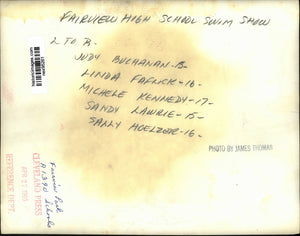 FAIRVIEW HIGH SCHOOL SWIM SHOW
L TO R-
JUDY BUCHANAN-15-
LINDA FAFLICK-16-
MICHELE KENNEDY-17-
SANDY LAWRIE-15-
SALLY HOELZER-16-
PHOTO BY JAMES THOMAN
Fairview Park
Schools
CLEVELAND PRESS
REFERENCE DEPT.